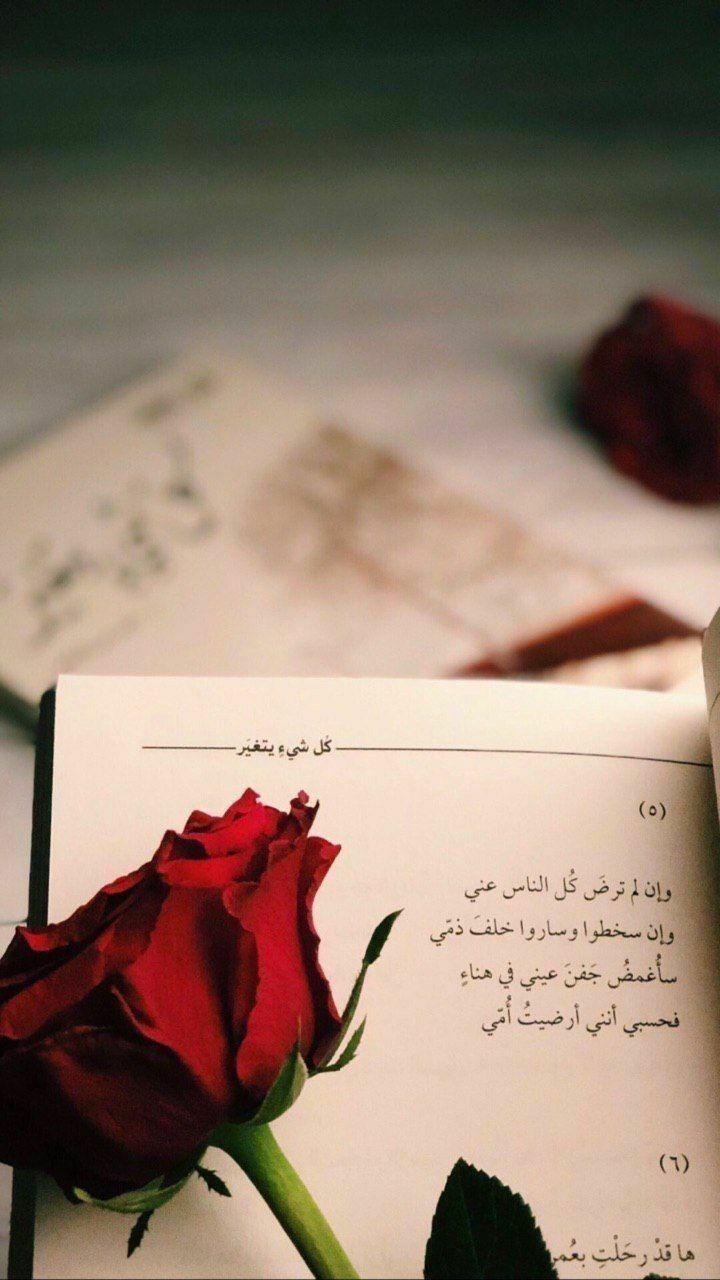 كُل شيءٍ يتغيَر
(٥)
وإن لم ترضَ كُل الناس عني
وإن سخطوا وساروا خلفَ ذمّي
سأُغمضُ جَفنَ عيني في هناءٍ
فحسبي أنني أرضيتُ أُمّي
(٦)
ها قدْ رحَلْتِ